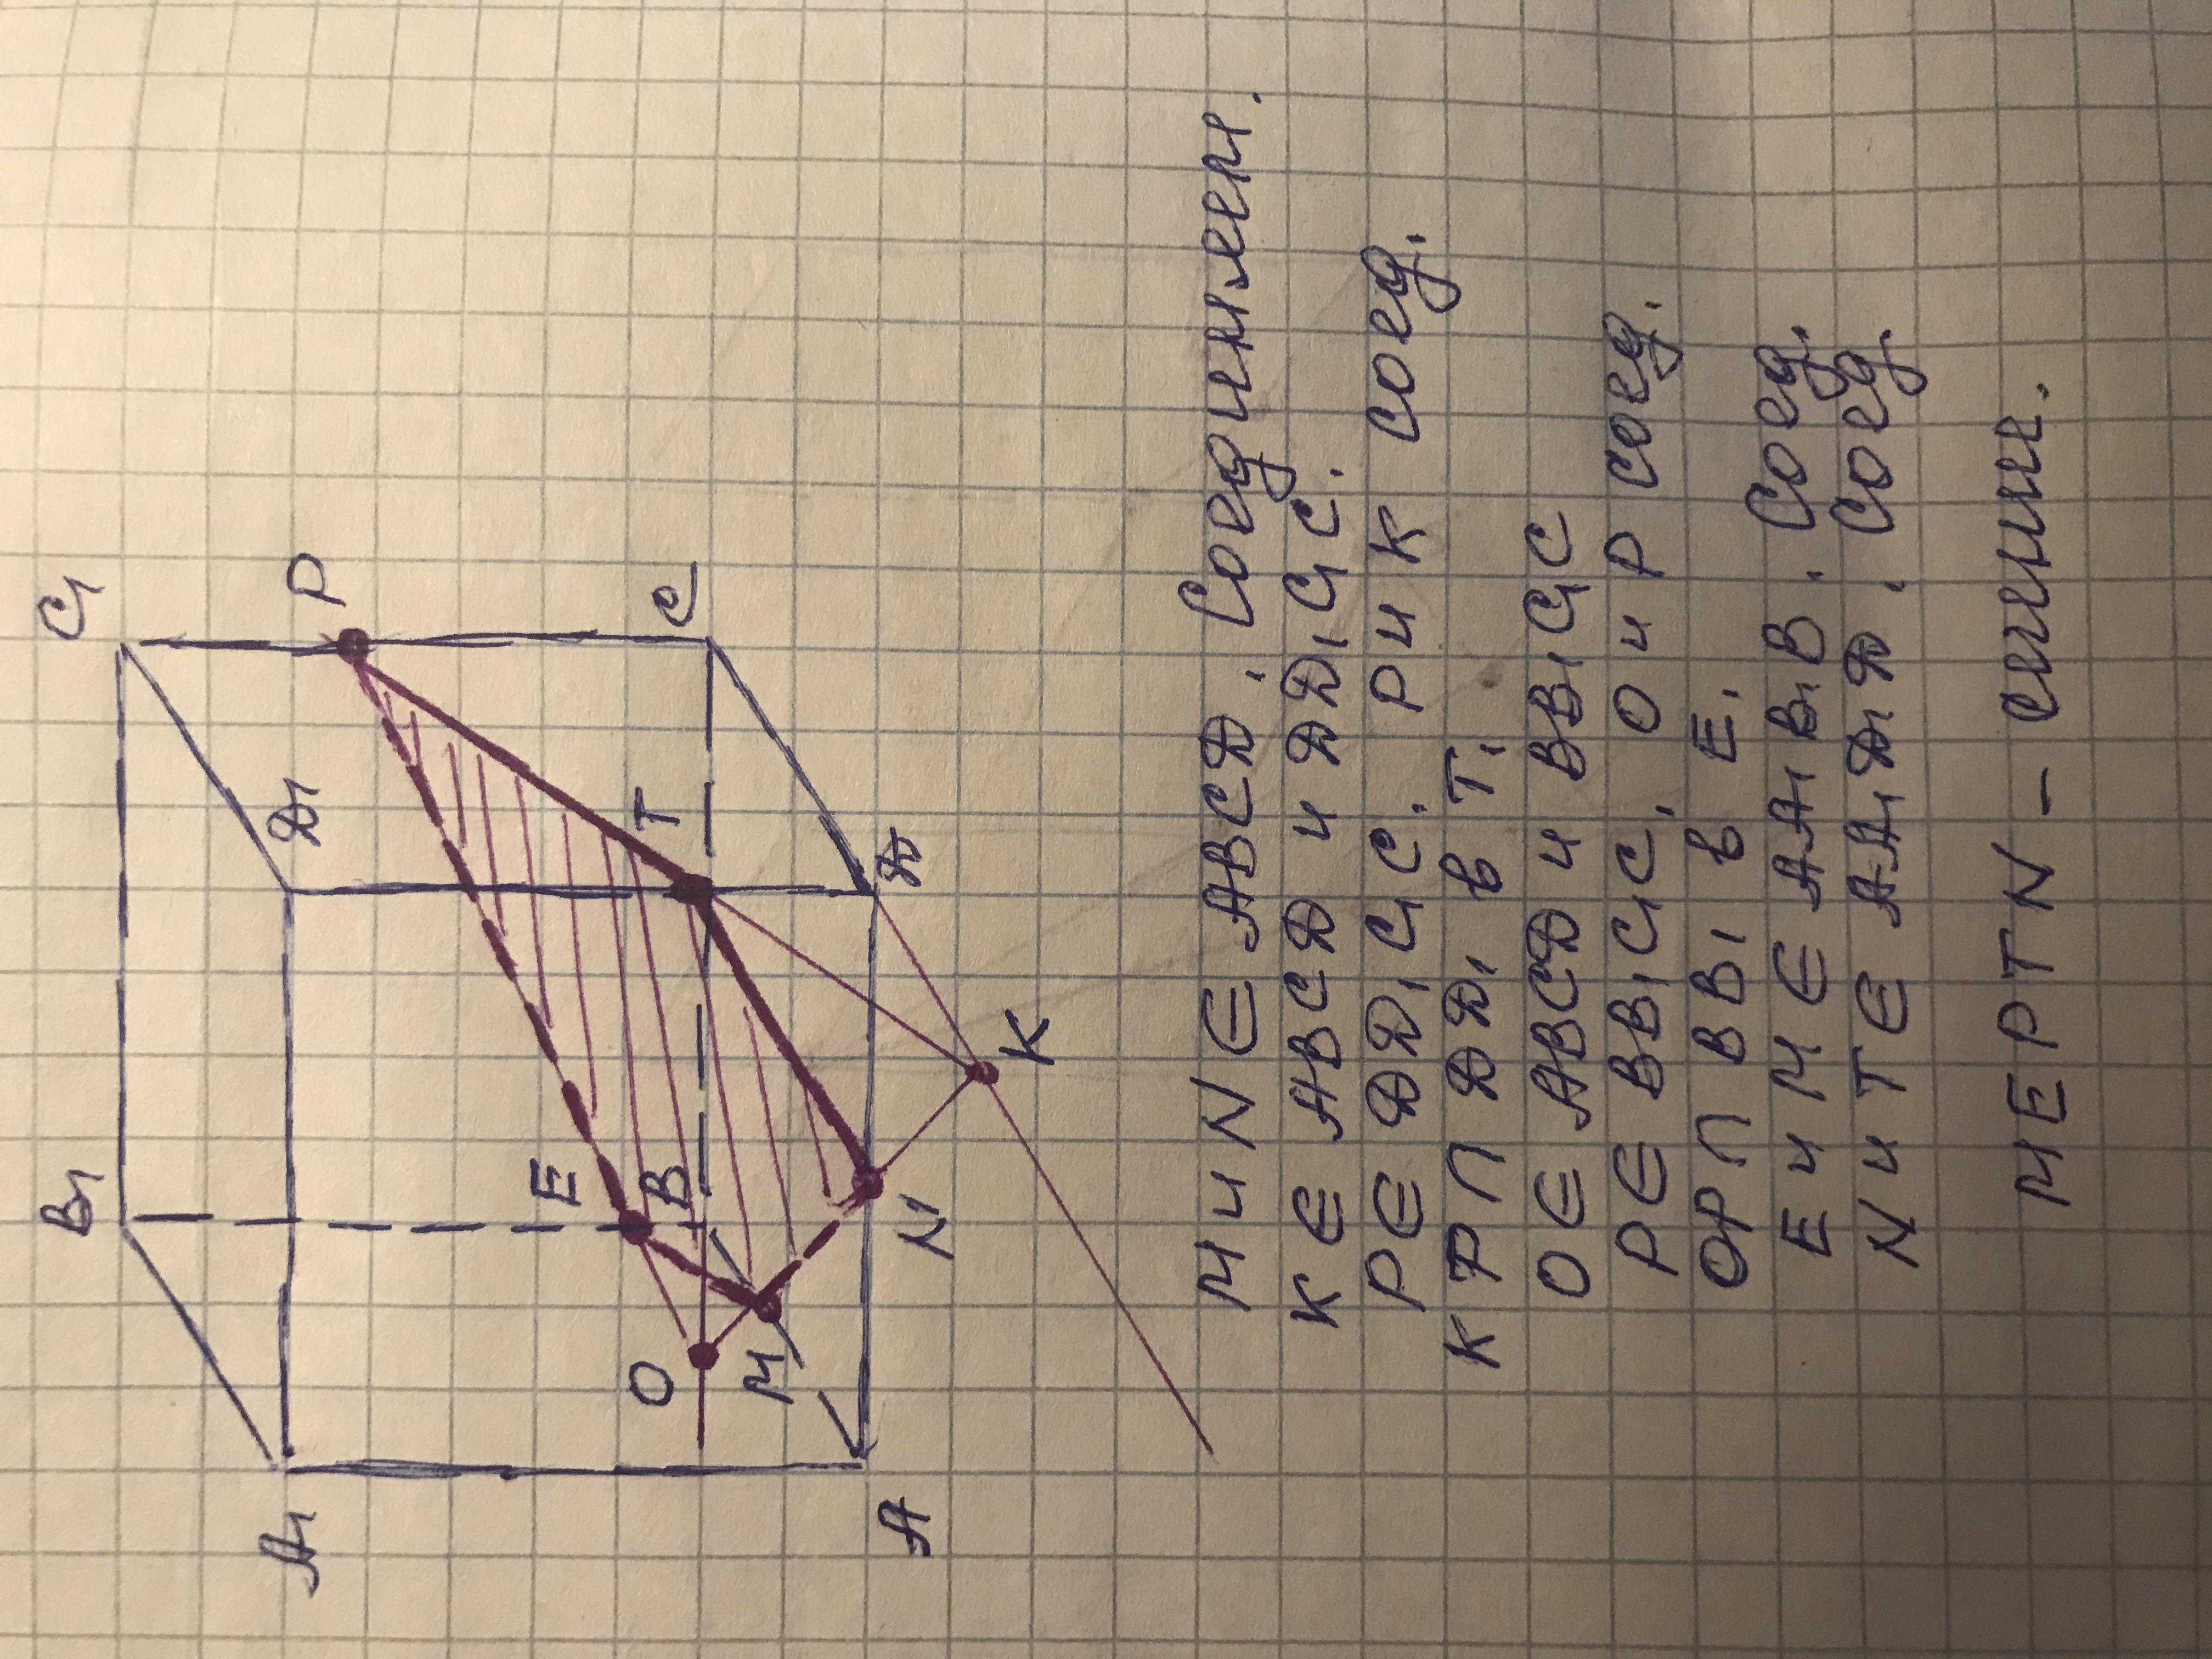 B₁ C₁
A₁ Д₁ P
E T
O B C
M
A N Д
K
M и N ∈ ABCД. Соединяем.
K ∈ ABCД и ДД₁C₁C.
P ∈ ДД₁C₁C. P и K соед.
KP ∩ ДД₁ в T.
O ∈ ABCД и BB₁C₁C
P ∈ BB₁C₁C. O и P соед.
OP ∩ BB₁ в E.
E и M ∈ AA₁B₁B. Соед.
N и T ∈ AA₁Д₁Д. Соед.
MEPTN – сечен.